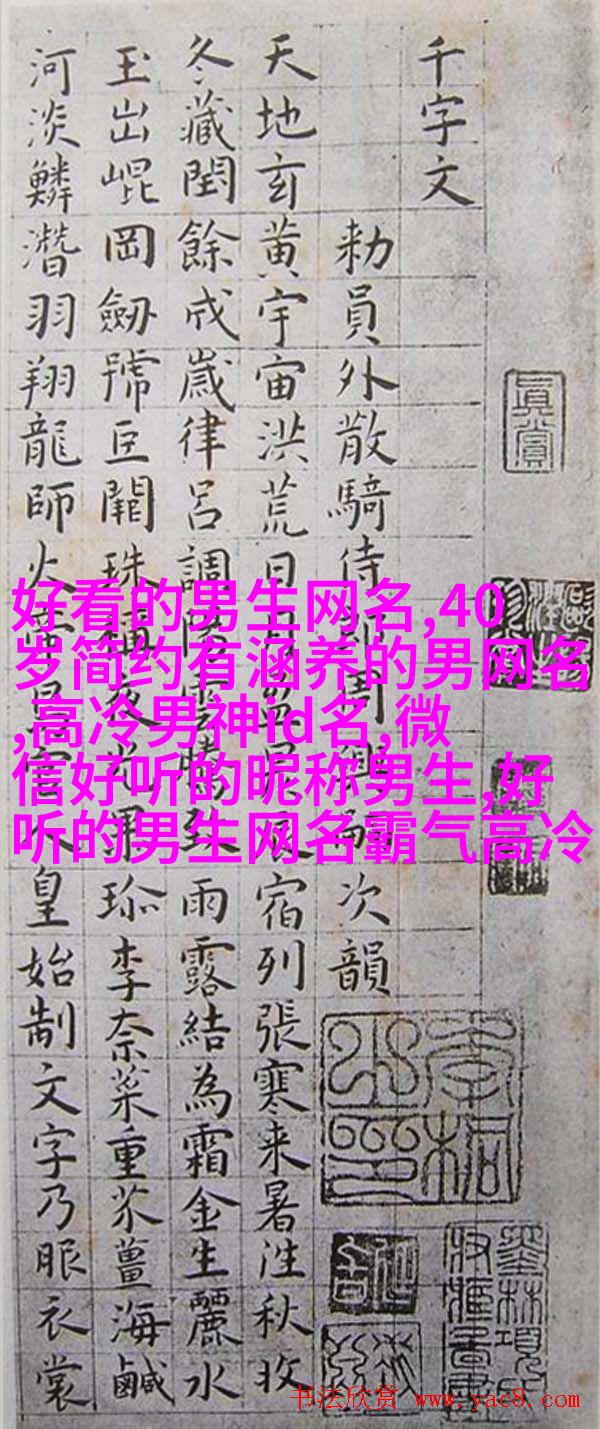 千字文
勑員外散騎侍郎周嗣次韻
天地玄黄宇宙洪荒日月盈昃辰宿列張寒来暑往秋收
冬藏閏餘成嵗律呂調陽雲騰致雨露結為霜金生麗水
玉出崐岡劒號巨闕珠稱夜光果珎李柰菜重芥薑海鹹
河淡鱗潜羽翔龍師火帝鳥官人皇始制文字乃服衣裳
真賞
好看的男生网名,40
岁简约有涵养的男网名
,高冷男神id名,微
信好听的昵称男生,好
听的男生网名霸气高冷
书法欣赏 www.yac8.com